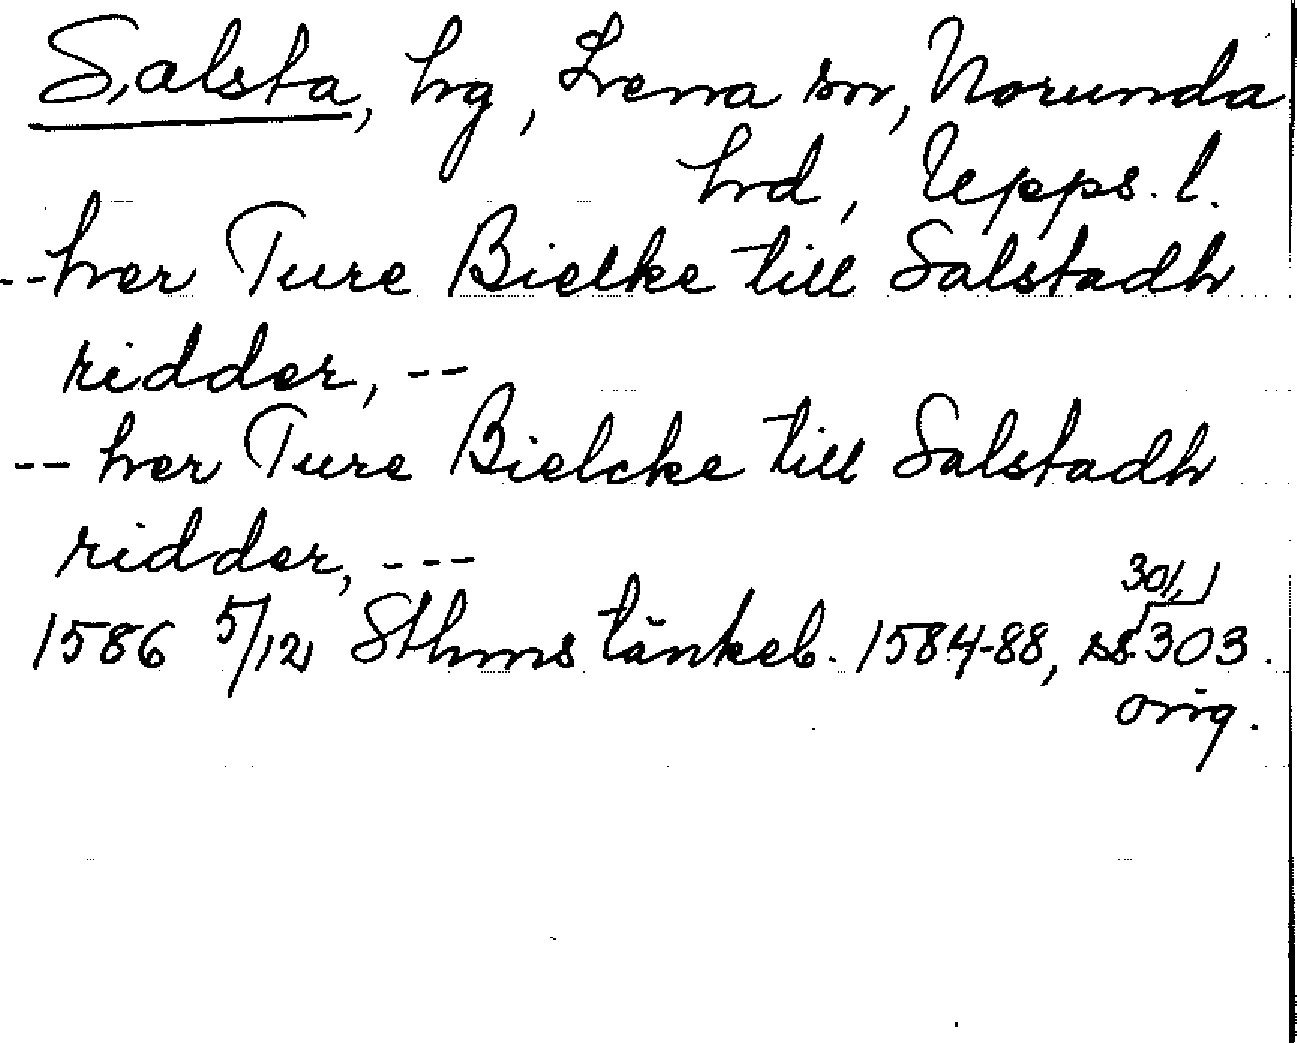 Salsta, hg, Lena sn, Norunda
hd, Upps. l.
-- her Ture Bielke till Salstadh
ridder, --
-- her Ture Bielcke till Salstadh
ridder, ---
301,
1586 5/12 Sthms tänkeb. 1584-88, ss. 303.
orig.